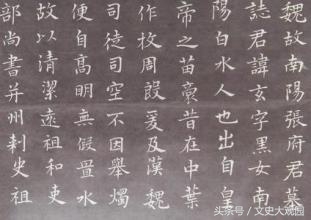 魏故南陽張府君墓
誌君諱玄字黑女南
陽白水人也出自皇
帝之苗裔昔在中葉
作牧周殷爰及漢魏
司徒司空不因舉燭
便自高明無假置水
故以清潔遠祖和吏
部尚書并州刾史祖
搜狐号@文史大观园